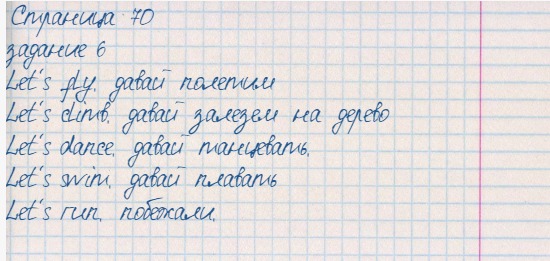 Страница 70
задание 6
Let's fly. давай полетим
Let's climb. давай залезем на дерево
Let's dance. давай танцевать.
Let's swim. давай плавать
Let's run. побежали.